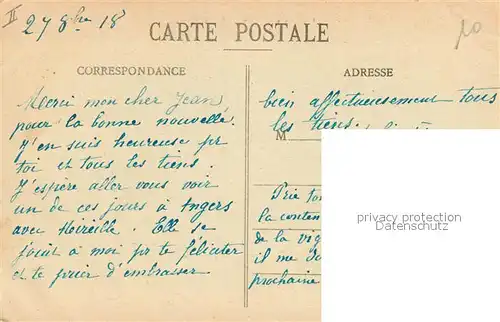 II
27 8bre 18
CARTE POSTALE
10
CORRESPONDANCE
ADRESSE
Merci mon cher Jean,
pour la bonne nouvelle.
J'en suis heureuse pr
toi et tous les tiens.
J'espère aller vous voir
un de ces jours à Angers
avec Mireille. Elle se
joint à moi pr te féliciter
et te prier d'embrasser
bien affectueusement tous
les tiens.
M
Prie
la
de la
il me
prochaine
privacy protection
Datenschutz